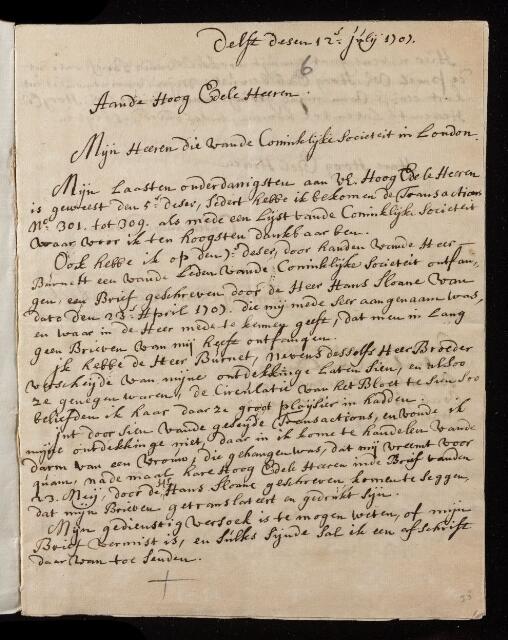 Delft desen 12e. July 1707.
6
Aande Hoog Edele Heeren.
Mijn Heeren die vande Coninklijke Societeit in London.
Mijn Laasten onderdanigsten aan UE. Hoog Edele Heeren
is geweest den 5e. deser, sedert hebbe ik bekomen de Transactien
No. 301. tot 309. als mede een Lijst vande Coninklijke Societeit
waar voor ik ten hoogsten dankbaar ben.
Ook hebbe ik op den 7e. deser, door handen vande Heer
Burnett een vande Leden vande Coninklijke Societeit ontfan-
gen, een Brief geschreven door de Heer Hans Sloane van
dato den 23e. April 1707. die mij mede seer aangenaam was,
en waar in de Heer mede te kennen geeft, dat men in Lang
geen Brieven van mij heeft ontfangen.
Ik hebbe de Heer Burnet, nevens desselfs Heer Broeder
verscheijde van mijne ontdekkinge Laten sien, en alsoo
ze genegen waren, de Circulatie van het Bloet te sien soo
beliefden ik haar daar ze groot plaijsier in hadden.
Int door sien vande geseijde Transactions, en vonde ik
mijne ontdekkinge niet, daar in ik kome te handelen vande
darm van een Vrouw, die gehangen was, dat mij vreemt voor
quam, nade maal hare Hoog Edele Heeren inde Brief vanden
23. Meij, door de Hr. Hans Sloane geschreven, komen te seggen,
dat mijn Brieven getranslateert en gedrukt sijn.
Mijn gedienstig versoek is te mogen weten, of mijn
Brief vermist is, en sulks sijnde sal ik een afschrift
daar van toe senden.